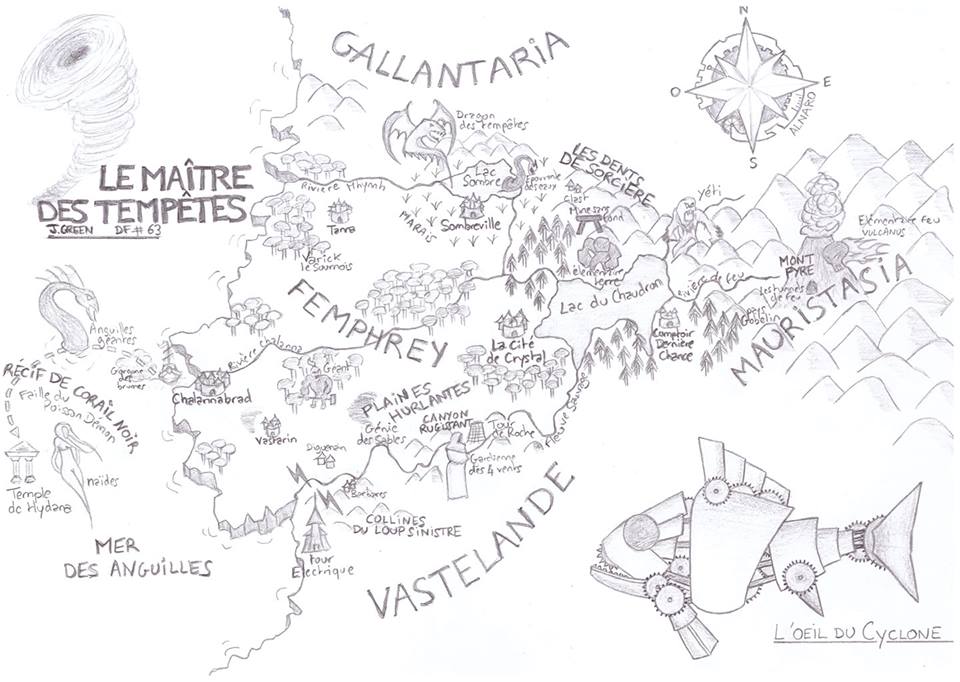 GALLANTARIA
N
O
E
S
ALNARO
LE MAÎTRE
DES TEMPÊTES
J. GREEN DF # 63
Dragon
des tempêtes
Rivière Rhymh
Lac
Sombre
Epouvante
des eaux
MARAIS
Sombreville
Tanra
Varick
le Sournois
LES DENTS
DE SORCIÈRE
Clast
Mine sans
fond
élémentaire
terre
Yéti
Elémentaire feu
VULCANUS
MONT
PYRE
Les tunnels
de feu
Rivière de feu
Lac du Chaudron
Pays
Gobelin
Comptoir
Dernière
Chance
MAURISTASIA
FEMPHREY
La Cité
de Crystal
Anguilles
géantes
RÉCIF DE CORAIL NOIR
Faille du
Poisson Démon
Gorgone des
brumes
Rivière Chalanna
Chalannabrad
Géant
PLAINES
HURLANTES
Génie
des Sables
CANYON
RUGISSANT
Tour
de Roche
Gardienne
des 4 vents
Fleuve Sauvage
Vastarin
Barbares
COLLINES
DU LOUP SINISTRE
Tour
Electrique
Temple
de Hydana
naïdes
MER
DES ANGUILLES
VASTELANDE
L'OEIL DU CYCLONE